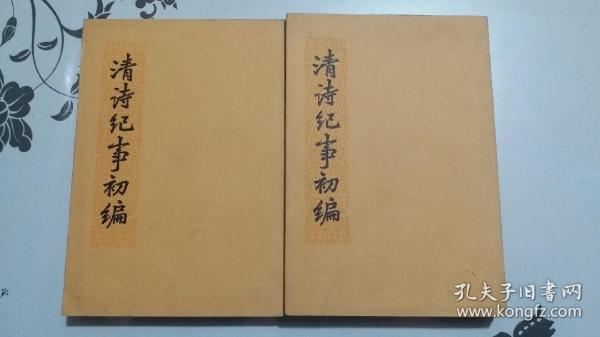 清诗纪事初编
清诗纪事初编
孔夫子旧书网
kongfz.com